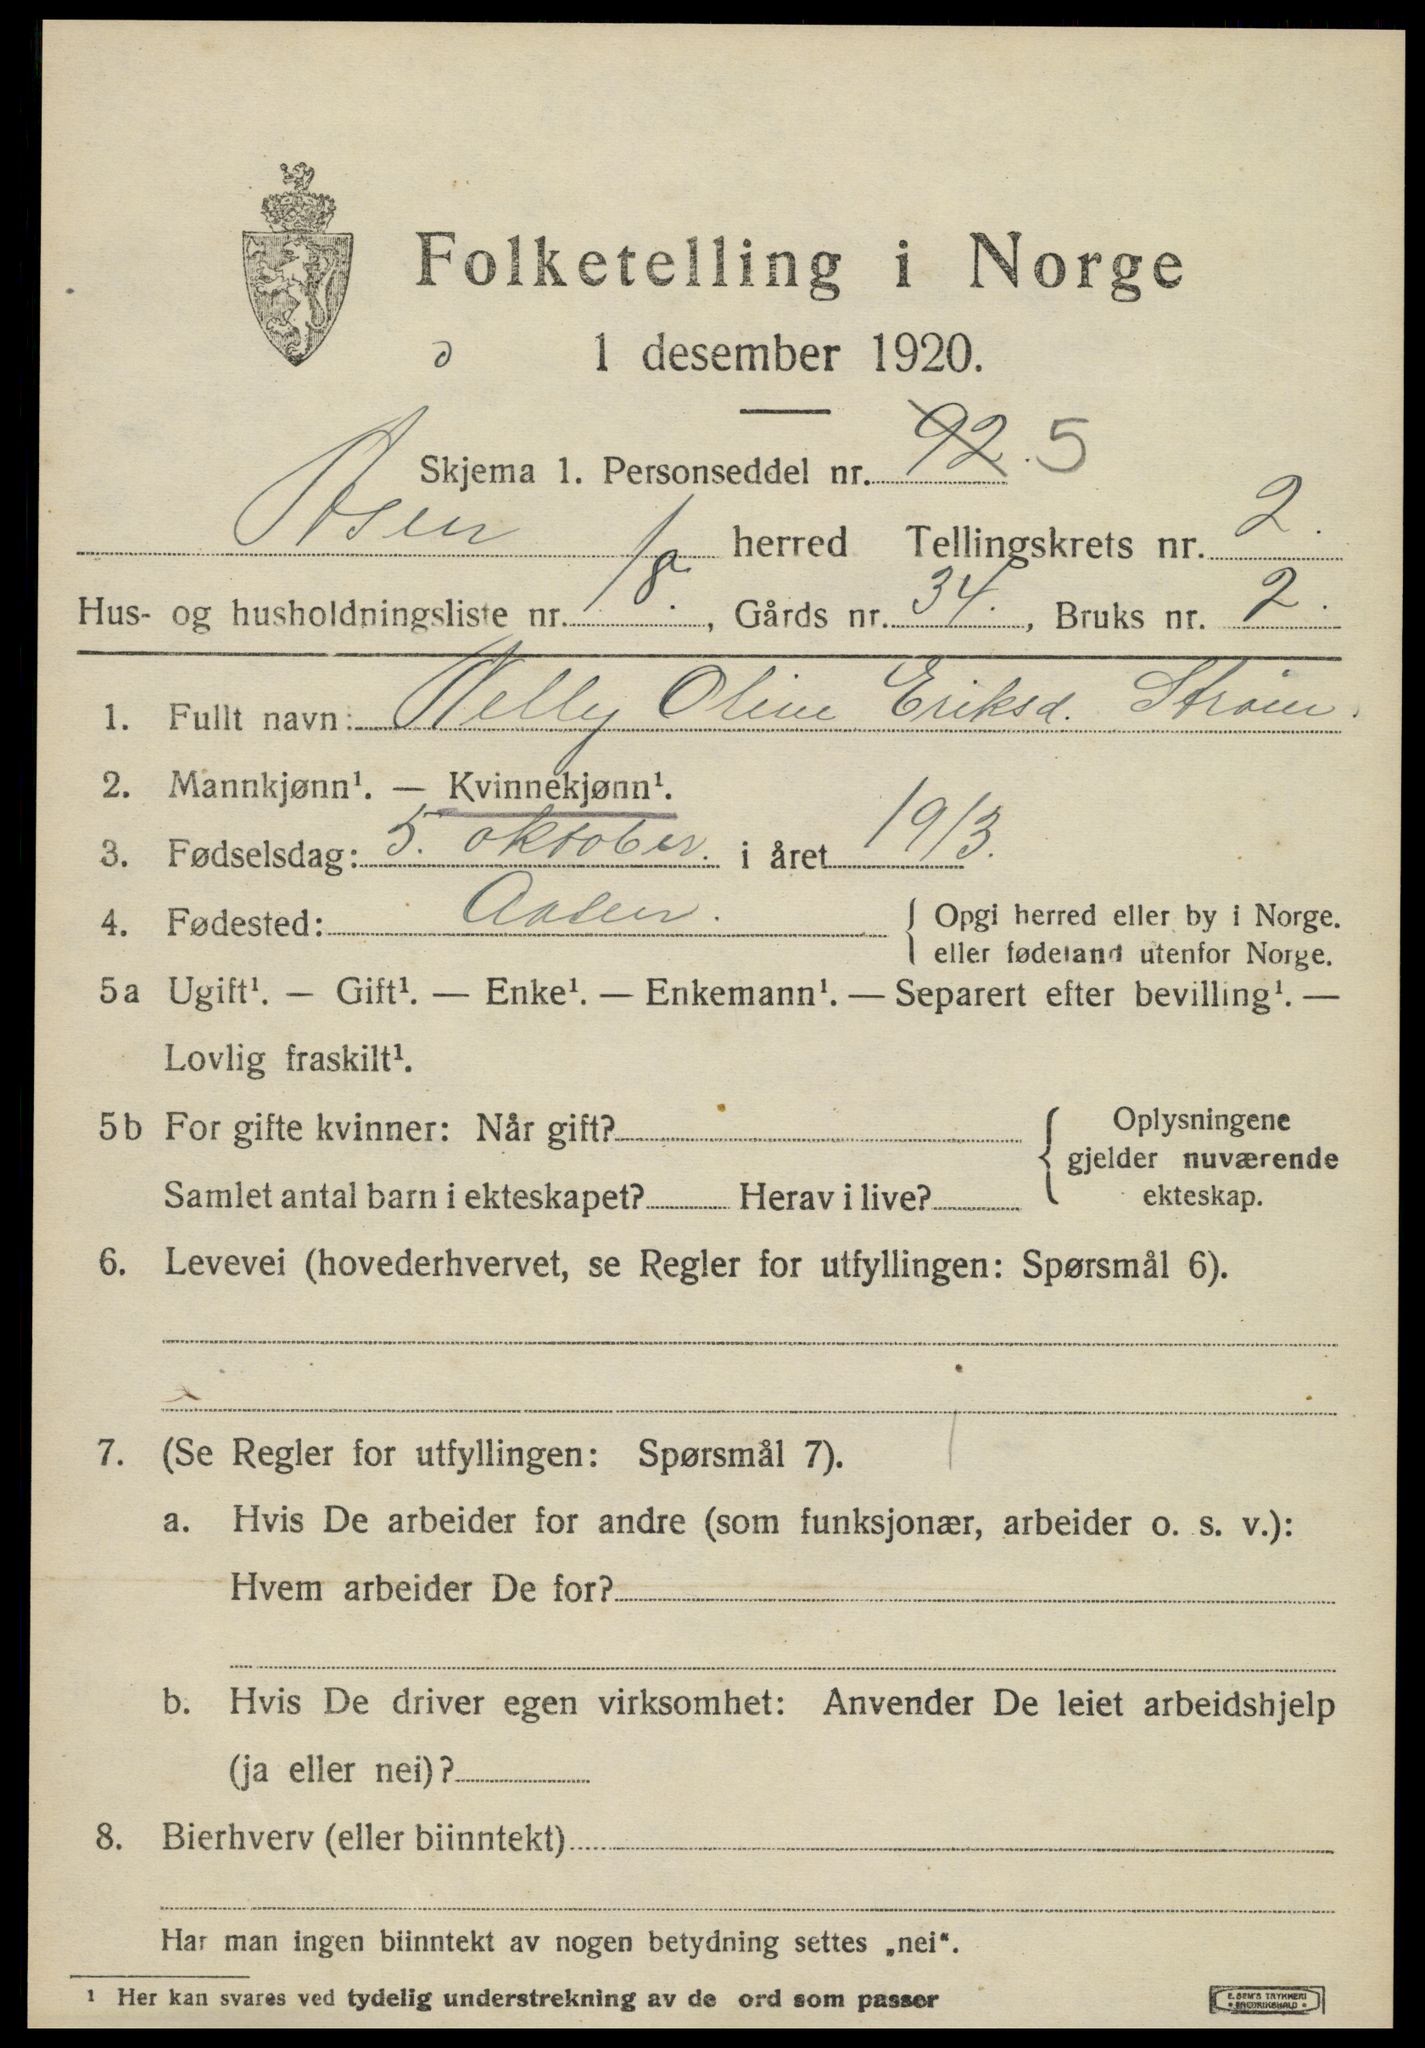 Folketelling i Norge
1 desember 1920.
Skjema 1. Personseddel nr. 92. 5
Åsen herred Tellingskrets nr. 2.
Hus- og husholdningsliste nr. , Gårds nr. 34. , Bruks nr. 2.
1. Fullt navn: Nelly Oline Eriksd. Strøm.
2. Mannkjønn¹. — Kvinnekjønn¹.
3. Fødselsdag: 5. oktober. i året 1913.
4. Fødested: Aasen. { Opgi herred eller by i Norge.
eller fødeland utenfor Norge.
5a Ugift¹. — Gift¹. — Enke¹. — Enkemann¹. — Separert efter bevilling¹. —
Lovlig fraskilt¹.
5b For gifte kvinner: Når gift? { Oplysningene
gjelder nuværende
Samlet antal barn i ekteskapet? Herav i live? ekteskap.
6. Levevei (hovederhvervet, se Regler for utfyllingen: Spørsmål 6).
7. (Se Regler for utfyllingen: Spørsmål 7).
a. Hvis De arbeider for andre (som funksjonær, arbeider o. s. v.):
Hvem arbeider De for?
b. Hvis De driver egen virksomhet: Anvender De leiet arbeidshjelp
(ja eller nei)?
8. Bierhverv (eller biinntekt)
Har man ingen biinntekt av nogen betydning settes „nei“.
¹ Her kan svares ved tydelig understrekning av de ord som passer
E. SEM'S TRYKKERI
FREDRIKSHALD